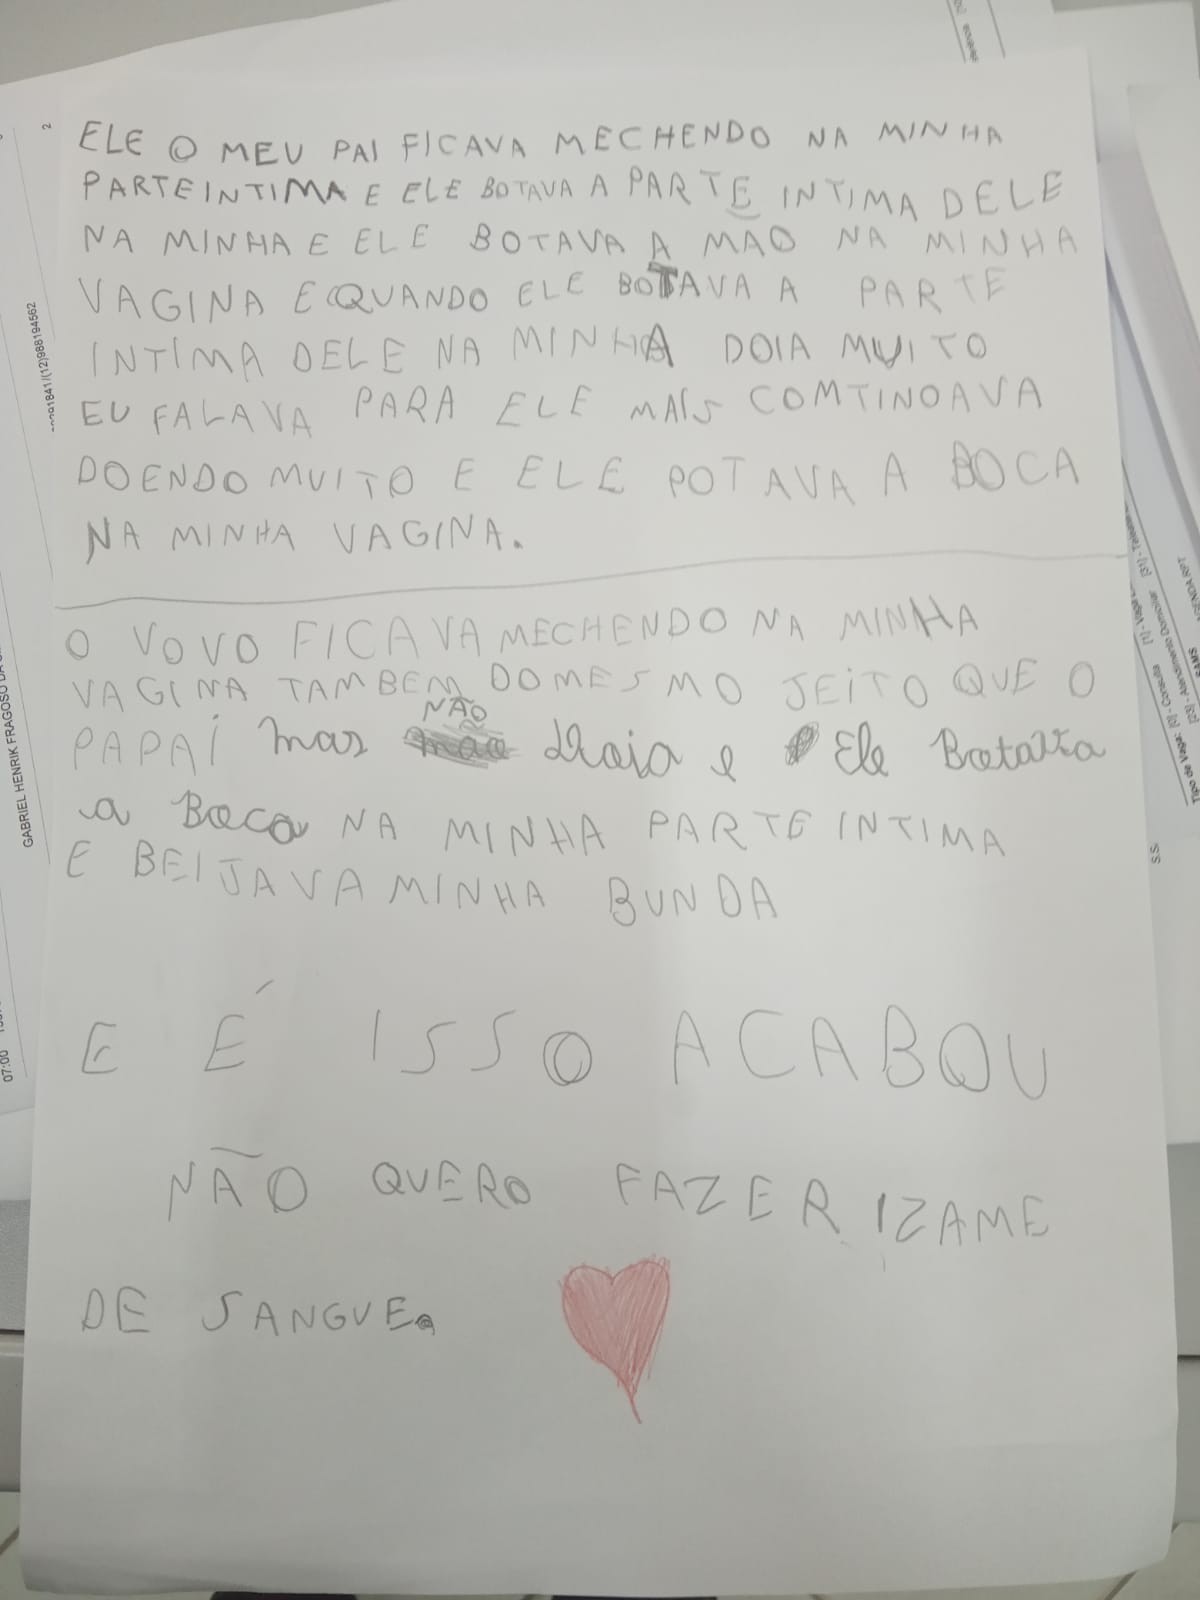 ELE O MEU PAI FICAVA MECHENDO NA MINHA
PARTEINTIMA E ELE BOTAVA A PARTE INTIMA DELE
NA MINHA E ELE BOTAVA A MAO NA MINHA
VAGINA E QUANDO ELE BOTAVA A PARTE
INTIMA DELE NA MINHA DOIA MUITO
EU FALAVA PARA ELE MAIS COMTINOAVA
DOENDO MUITO E ELE POTAVA A BOCA
NA MINHA VAGINA.
O VOVO FICAVA MECHENDO NA MINHA
VAGINA TAMBEM DO MESMO JEITO QUE O
PAPAI mas NÃO doia e Ele Botava
a Boca NA MINHA PARTE INTIMA
E BEIJAVA MINHA BUNDA
E É ISSO ACABOU
NÃO QUERO FAZER IZAME
DE SANGUE.